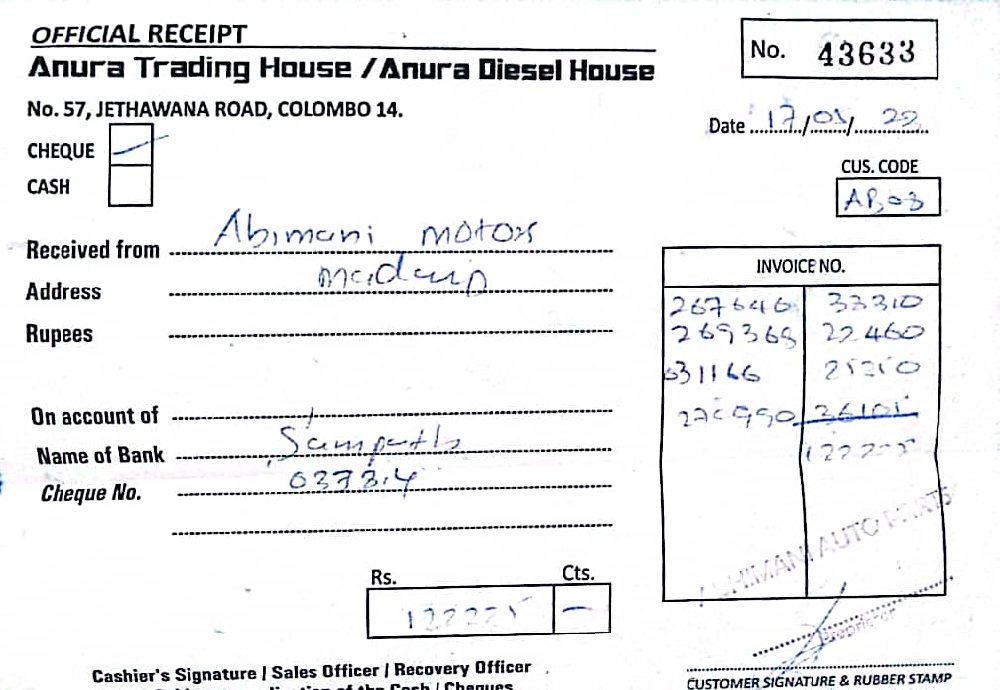 OFFICIAL RECEIPT
Anura Trading House / Anura Diesel House
No. 57, JETHAWANA ROAD, COLOMBO 14.
No. 43633
Date 17/05/22
CHEQUE
CASH
CUS. CODE
AB03
Received from Abimani motors
Address
Rupees
On account of
Name of Bank Sampath
Cheque No. 037314
INVOICE NO.
267646 33310
269368 22460
031166
36105
122225
ABHIMANI AUTO PARTS
Proprietor
Rs. Cts.
122225 —
Cashier's Signature / Sales Officer / Recovery Officer
of the Cash / Cheques
CUSTOMER SIGNATURE & RUBBER STAMP